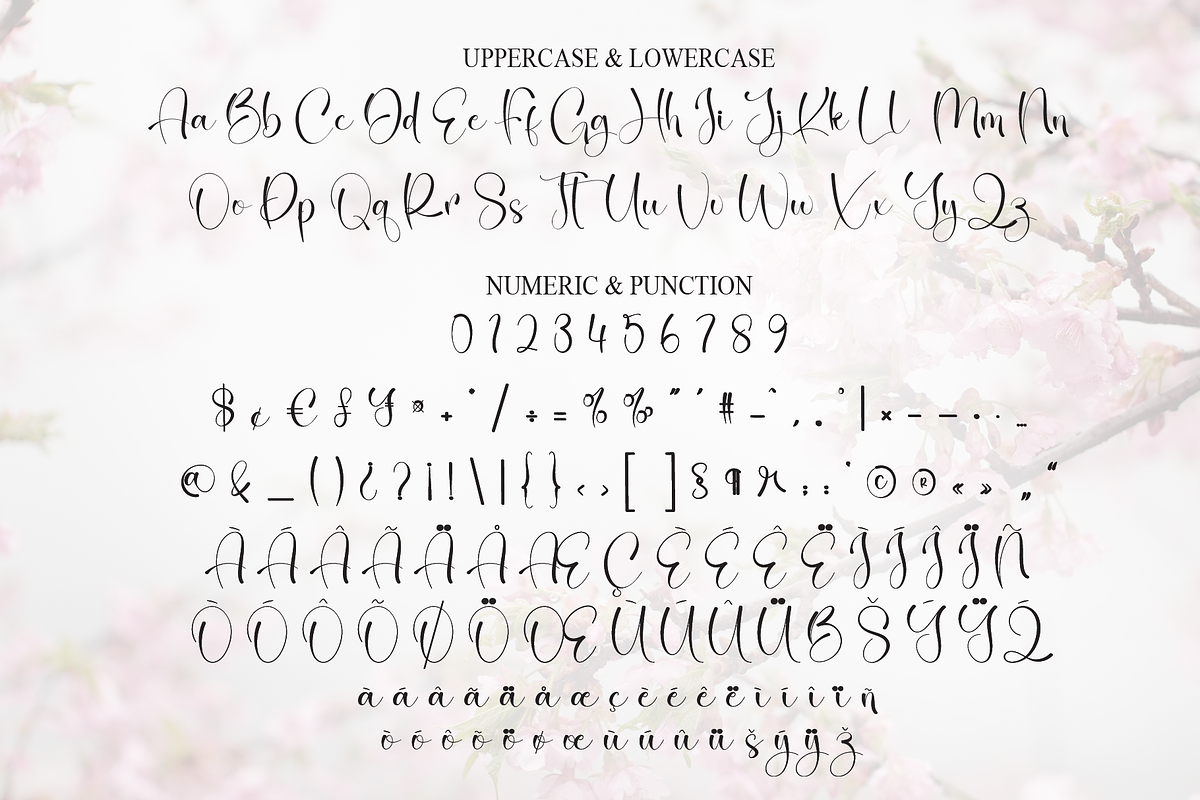 UPPERCASE & LOWERCASE
Aa Bb Cc Dd Ee Ff Gg Hh Ii Jj Kk Ll Mm Nn
Oo Pp Qq Rr Ss Tt Uu Vv Ww Xx Yy Zz
NUMERIC & PUNCTION
0 1 2 3 4 5 6 7 8 9
$ ¢ € £ ¥ ¤ + / ÷ = % ‰ " ' # – ^ , . ° | × - – • · …
@ & _ ( ) ¿ ? ¡ ! \ | { } ‹ › [ ] § ¶ ; : © ® « » „ “
À Á Â Ã Ä Å Æ Ç È É Ê Ë Ì Í Î Ï Ñ
Ò Ó Ô Õ Ø Ö Œ Ù Ú Û Ü ß Š Ý Ÿ Ž
à á â ã ä å æ ç è é ê ë ì í î ï ñ
ò ó ô õ ö ø œ ù ú û ü š ý ÿ ž